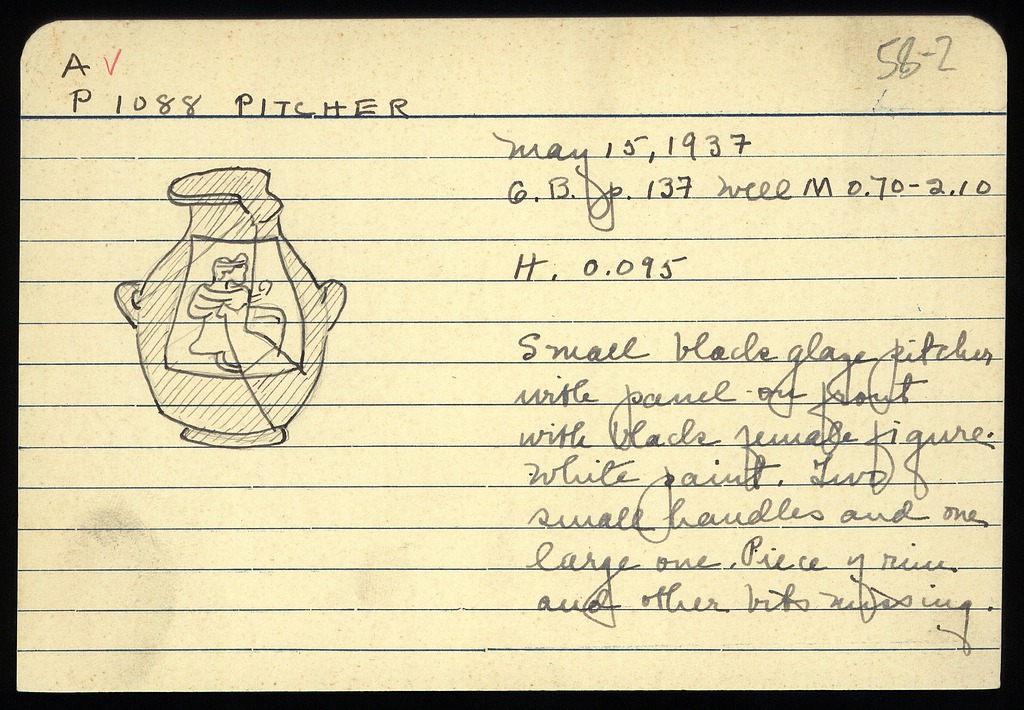 A ✓
58-2
P 1088 PITCHER
May 15, 1937
G.B. p. 137 Well M 0.70-2.10
H. 0.095
Small black glaze pitcher
with panel on front
with black female figure.
White paint. Two
small handles and one
large one. Piece of rim
and other bits missing.